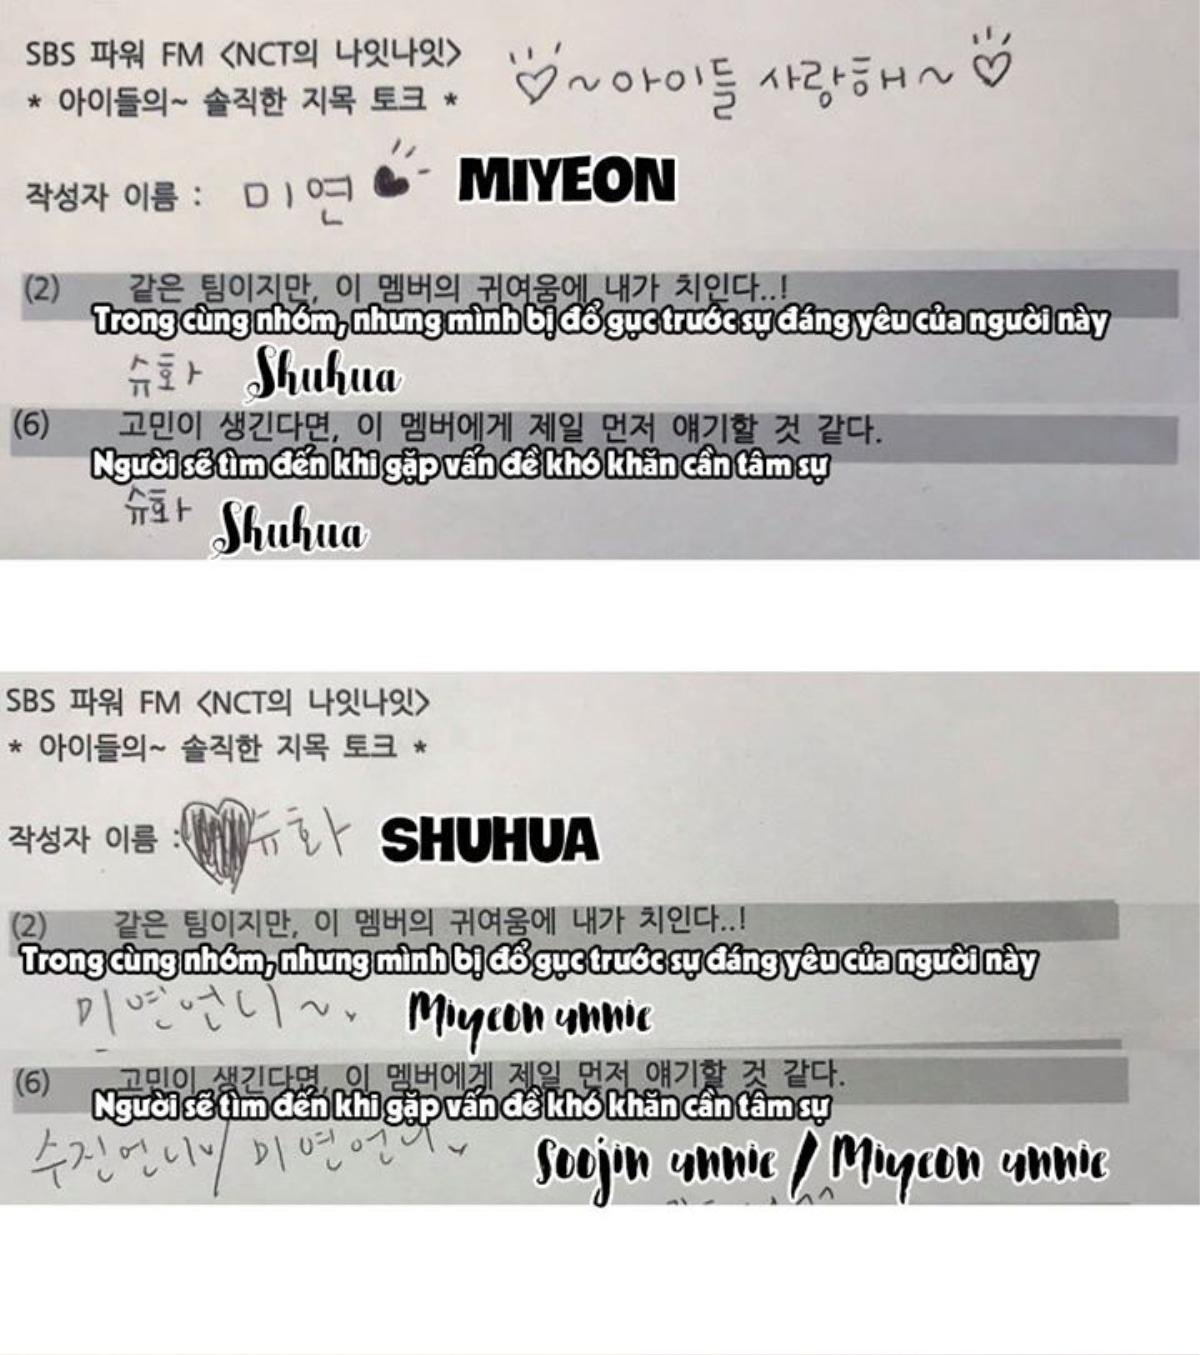 SBS 파워 FM <NCT의 나잇나잇>
* 아이들의~ 솔직한 지목 토크 *
~아이들 사랑해~
작성자 이름 : 미연
MIYEON
(2) 같은 팀이지만, 이 멤버의 귀여움에 내가 치인다..!
Trong cùng nhóm, nhưng mình bị đổ gục trước sự đáng yêu của người này
슈화
Shuhua
(6) 고민이 생긴다면, 이 멤버에게 제일 먼저 얘기할 것 같다.
Người sẽ tìm đến khi gặp vấn đề khó khăn cần tâm sự
슈화
Shuhua
SBS 파워 FM <NCT의 나잇나잇>
* 아이들의~ 솔직한 지목 토크 *
작성자 이름 : 슈화
SHUHUA
(2) 같은 팀이지만, 이 멤버의 귀여움에 내가 치인다..!
Trong cùng nhóm, nhưng mình bị đổ gục trước sự đáng yêu của người này
미연언니~
Miyeon unnie
(6) 고민이 생긴다면, 이 멤버에게 제일 먼저 얘기할 것 같다.
Người sẽ tìm đến khi gặp vấn đề khó khăn cần tâm sự
수진언니 / 미연언니
Soojin unnie / Miyeon unnie